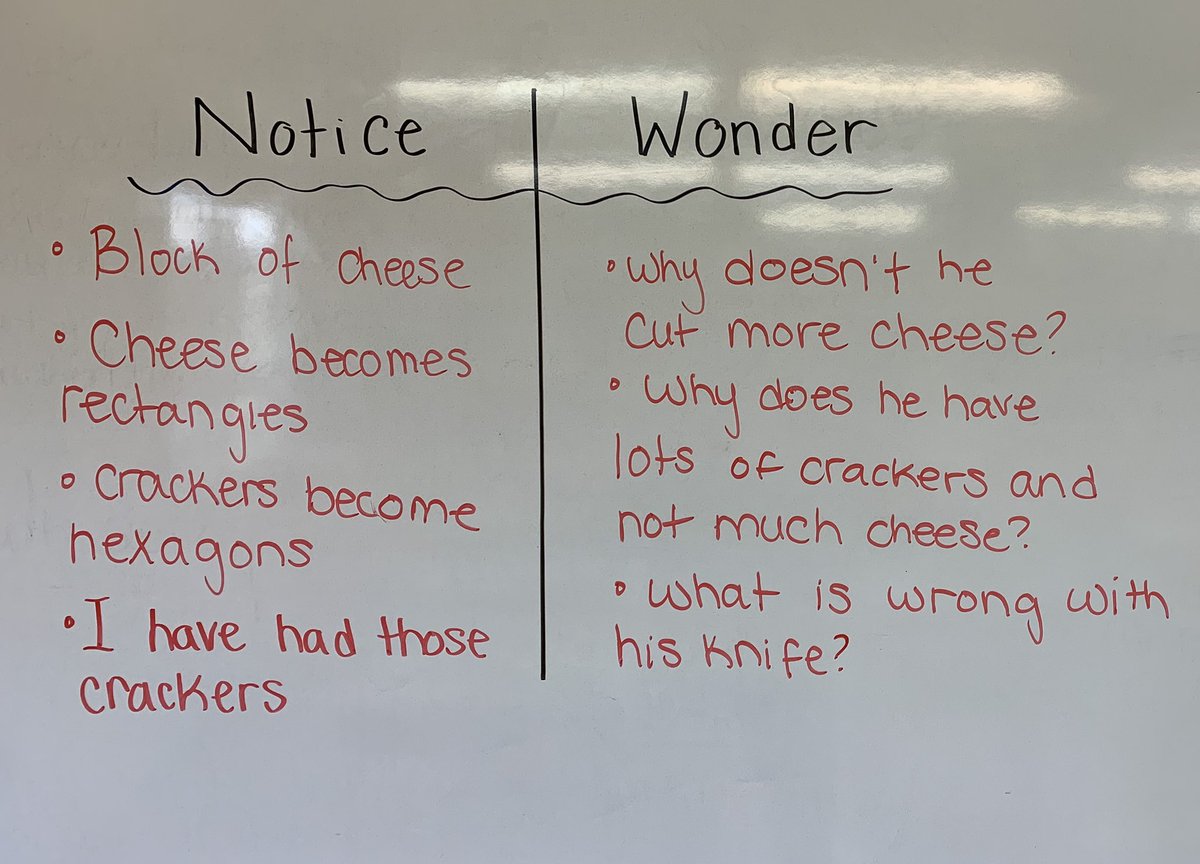 Notice
• Block of cheese
• Cheese becomes
rectangles
• Crackers become
hexagons
• I have had those
crackers
Wonder
• Why doesn't he
cut more cheese?
• Why does he have
lots of crackers and
not much cheese?
• What is wrong with
his knife?